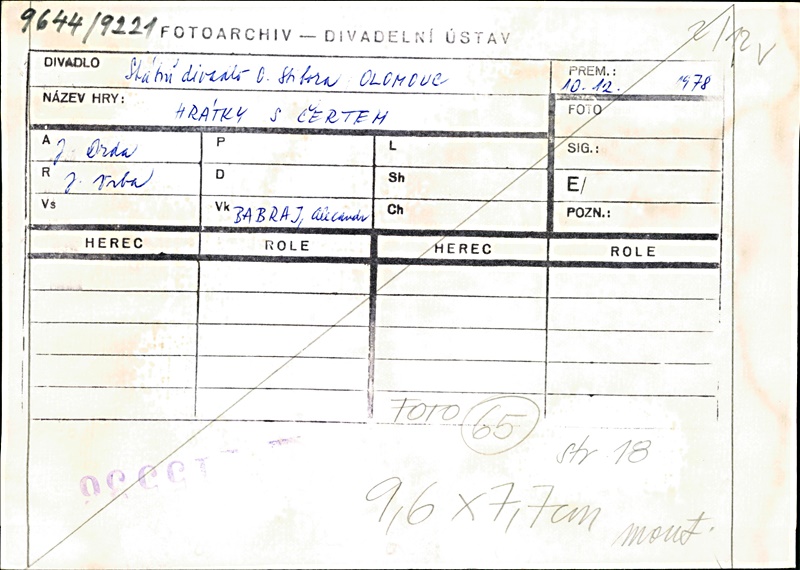 9644/9221 FOTOARCHIV — DIVADELNÍ ÚSTAV
DIVADLO Státní divadlo O. Stibora OLOMOUC
PREM.: 10. 12. 1978
NÁZEV HRY: HRÁTKY S ČERTEM
FOTO
A J. Drda P L SIG.:
R J. Vrba D Sh E/
Vs Vk BABRAJ, Alexandr Ch POZN.:
HEREC ROLE HEREC ROLE
FOTO 65
str 18
9,6 x 7,7cm
mont.